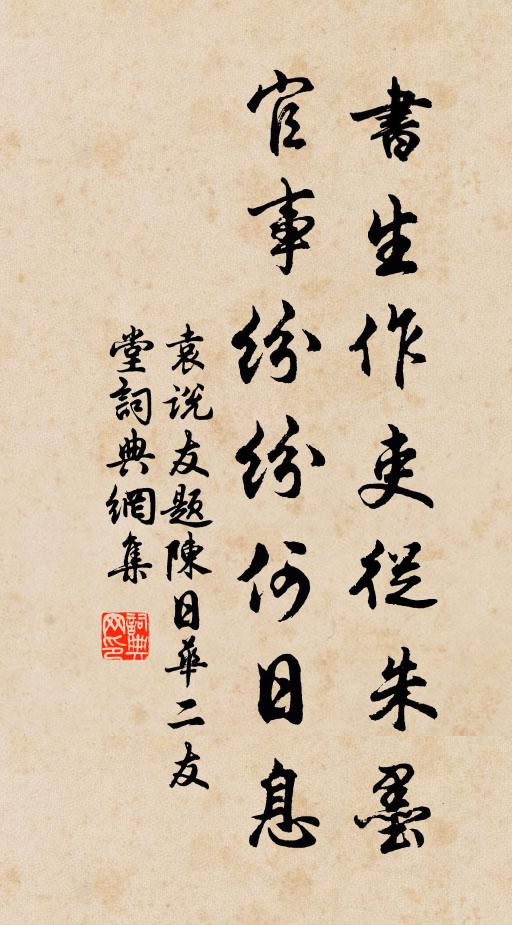 書生作吏從朱墨
官事紛紛何日息
袁説友題陳日華二友
堂詞典網集
詞典
网印